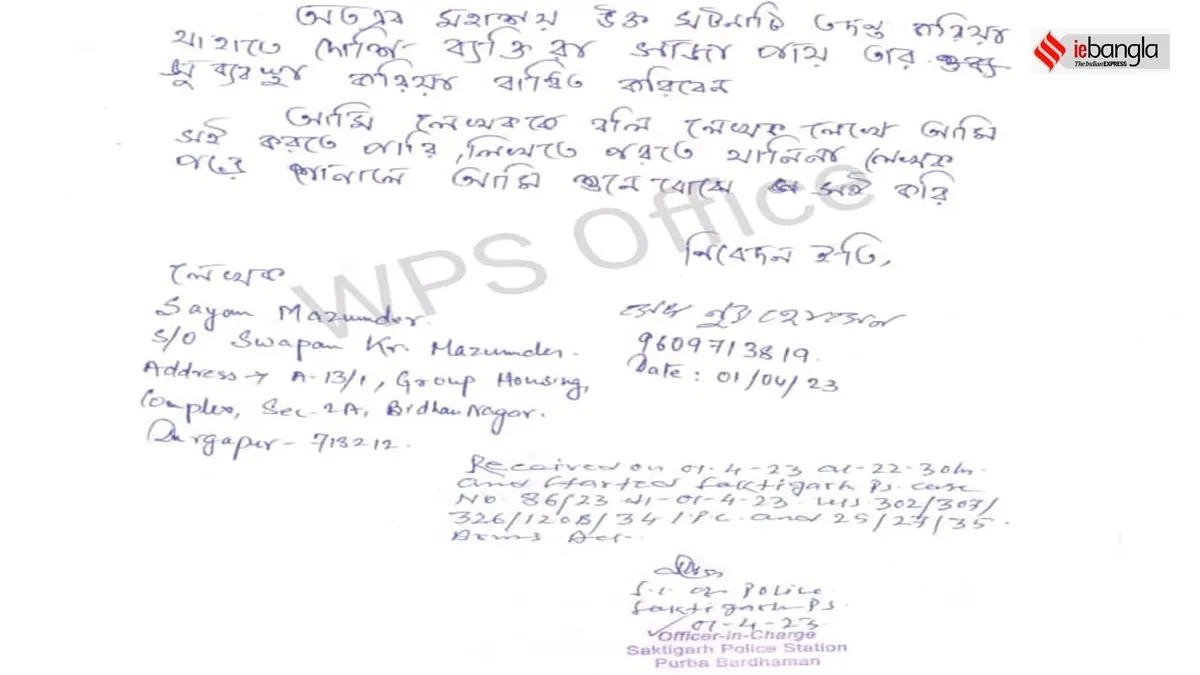 অতএব মহাশয় উক্ত ঘটনাটি তদন্ত করিয়া
যাহাতে দোশি ব্যক্তি রা সাজা পায় তার
সুব্যবস্থা করিয়া বাধিত করিবেন
আমি লেখককে বলি লেখক লেখে আমি
সই করতে পারি, লিখতে পরতে যানিনা লেখক
পড়ে শোনালে আমি শুনে বোঝে সই করি
নিবেদন ইতি,
লেখক
Sayan Mazumder.
S/O Swapan Kr. Mazumder.
Address → A-13/1, Group Housing,
Complex, Sec-2A, Bidhan Nagar.
Durgapur - 713212.
9609713819.
Date: 01/04/23
Received on 01-4-23 at 22.30 hr.
and started Saktigarh Ps. case
No. 86/23 dt-01-4-23 u/s 302/307/
326/120B/34 I.P.C. and 25/27/35.
Arms Act.
S.I. of Police
Saktigarh PS.
01-4-23
Officer-in-Charge
Saktigarh Police Station
Purba Bardhaman
WPS Office
iebangla
The Indian EXPRESS